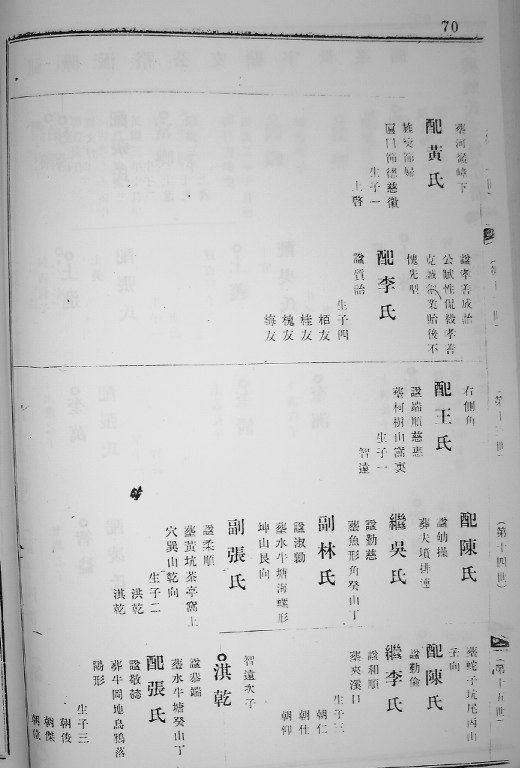 70
葬河嶺峰下
配黃氏
雍安節婦
圖曰節德慈徽
生子一
上啓
諡孝善成詒
公賦性侃毅孝善
克誠創業貽後不
愧先型
配李氏
諡質詒
生子四
栢友
桂友
槐友
梅友
(第十三世)
右側角
配王氏
諡端順慈惠
葬柯樹山窩裏
生子一
智遠
(第十四世)
配陳氏
諡幼操
葬夫墳排連
繼吳氏
諡勤慈
葬魚形角癸山丁
副林氏
諡淑勤
葬水牛塘海螺形
坤山艮向
副張氏
諡柔順
葬黃坑茶亭窩上
穴巽山乾向
生子二
洪乾
淇乾
(第十五世)
葬蛇子坑尾丙山
子向
配陳氏
諡勤儉
繼李氏
諡和順
葬夾溪口
生子三
朝仁
朝仕
朝仰
淇乾
智遠次子
諡恭端
葬水牛塘癸山丁
配張氏
諡敬懿
葬牛岡地烏鴉落
陽形
生子三
朝俊
朝傑
朝位